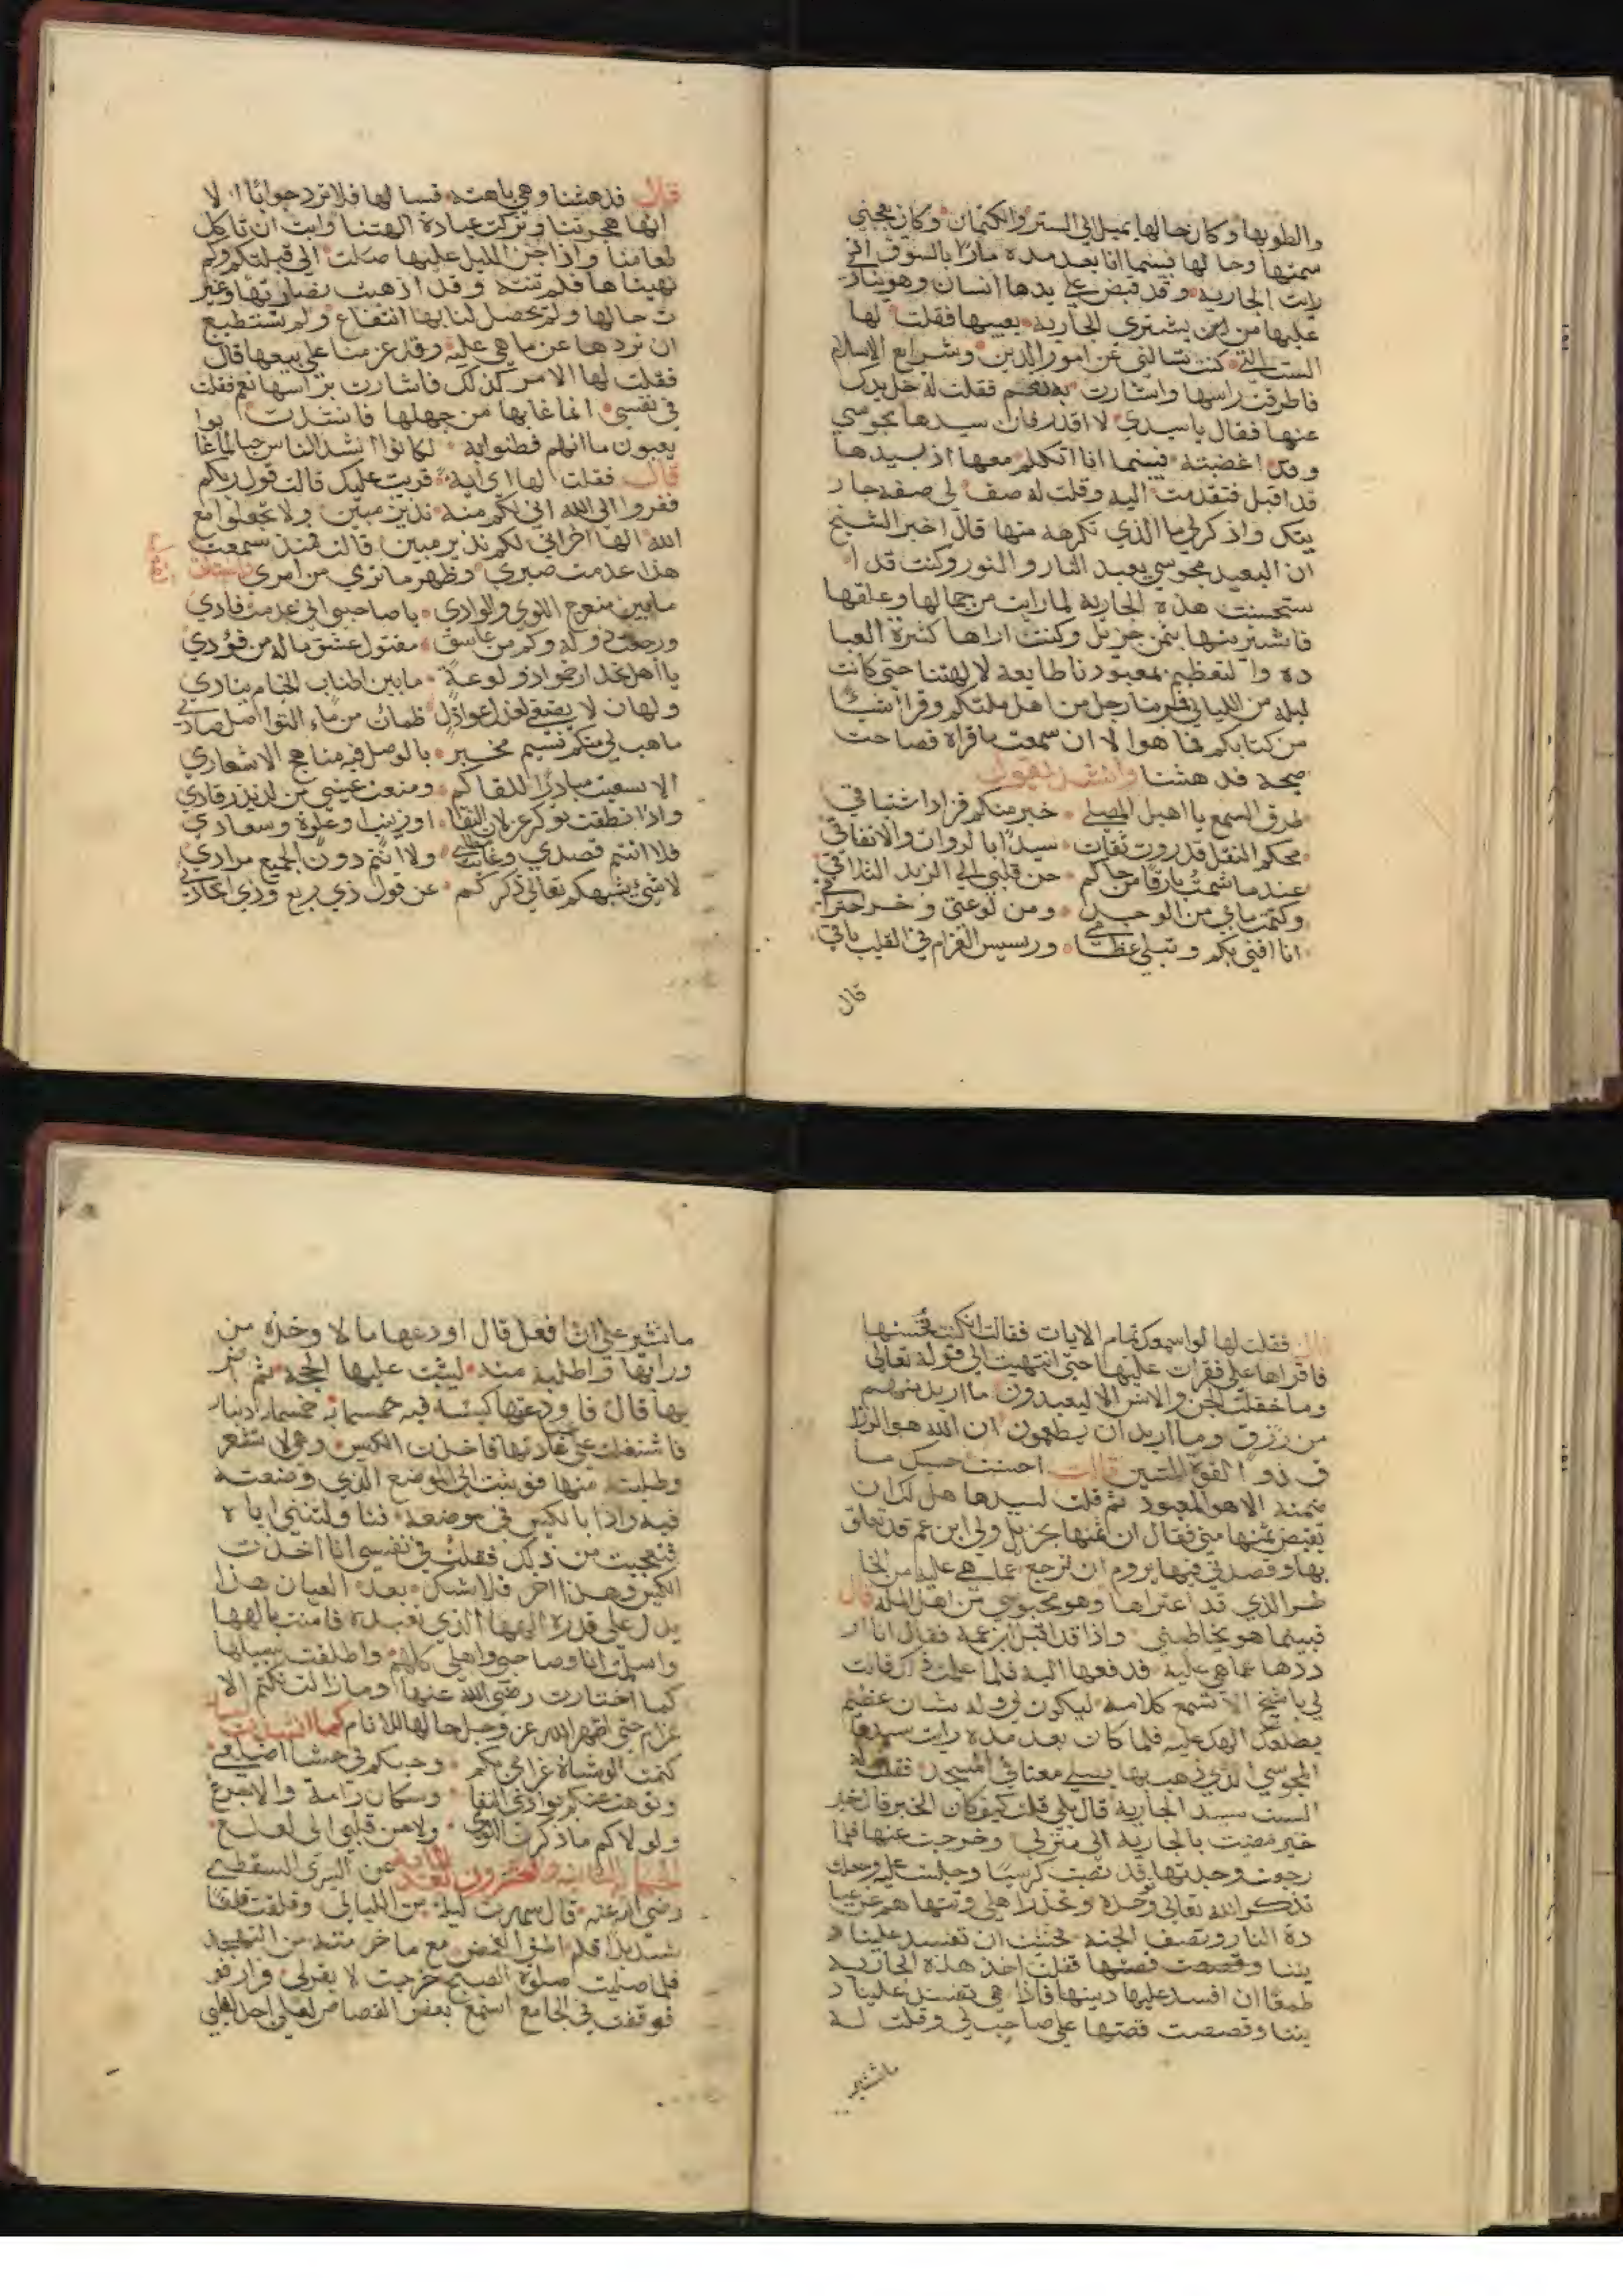 والطوبها وكان حالها يميل الي الستر والكتمان وكان يعجبني
سمتها وحالها فبينما انا بعد مدة مارًا بالسوق اذ
رايت الجارية وقد قبض علي يدها انسان وهو ينادي
عليها من اين يشتري الجارية بعيبها فقلت لها
الست التي كنت تسالني عن امور الدين وشرايع الاسلام
فاطرقت راسها واشارت بنعم فقلت له خل يدك
عنها فقال يا سيدي لا اقدر فان سيدها مجوسي
وقد اغضبته فبينما انا اتكلم معها اذ بسيدها
قد اقبل فتقدمت اليه وقلت له صف لي صفة جار
يتك واذكر لي ما الذي تكرهه منها قال اخبر الشيخ
ان البعيد مجوسي يعبد النار والنور وكنت قد ا
ستحسنت هذه الجارية لما رايت من جمالها وعلقها
فاشتريتها بثمن جزيل وكنت اراها كثيرة العبا
دة والتعظيم لمعبودنا طايعة لالهتنا حتي كانت
ليلة من الليالي فمر بنا رجل من اهل ملتكم وقرا شيئا
من كتابكم فما هو الا ان سمعت ما قراه فصاحت
صيحة فدهشنا وانشد يقول
طرق السمع يا اهيل المصلي خبر منكم فزاد اشتياقي
محكم النقل قد روت ثقات سيد ابا لروات والاتفاقي
عند ما شمت بارقا من حماكم حن قلبي الي الزيد التلاقي
وكتمت ما بي من الوجد ومن لوعتي وخر احتراقي
انا افني بكم وتبلي عظامي ورسيس الغرام في القلب باقي
قال
قال فدهشنا وهي باهتة فنسالها فلا ترد جوابًا الا
انها هجرتنا وتركت عبادة الهتنا وابت ان تاكل
طعامنا واذا جن الليل عليها صلت الي قبلتكم وكم
نهيناها فلم تنته وقد اذهبت نضارتها وغير
ت حالها ولم يحصل لنا بها انتفاع ولم نستطيع
ان نردها عن ما هي عليه وقد عزمنا علي بيعها قال
فقلت لها الامر كذلك فاشارت براسها نعم فقلت
في نفسي انما عابها من جهلها فانشدت
يعيبون ما انهم فطنوا به لكانوا اشد الناس حبا لما عا بوا
قال فقلت لها اي اية قريت عليك قالت قول ربكم
ففروا الي الله اني لكم منه نذير مبين ولا تجعلوا مع
الله الها اخر اني لكم نذير مبين قالت فمنذ سمعت
هذا عدمت صبري وظهر ما تري من امري فانشات
مابين منعرج اللوي والوادي يا صاحبي اني عدمت فادي
ورجعت ذو وله وكم من عاشق مقتول عشق ما له من فودي
يا اهل نجد ارحموا ذو لوعة مابين اطناب الخيام ينادي
ولهان لا يصغي لعذل عواذل ظمان من ماء النوا اصل صادي
ما هب لي منكم نسيم مخبر بالوصل فيه مناهج الاشعاري
الا سعيت مبادرًا للقاكم ومنعت عيني من لذيذ رقادي
واذا نطقت بذكر غزلان النقا او زينب او علوة وسعادي
فلا انتم قصدي وغايت مطلبي ولا انتم دون الجميع مرادي
لا شيء يشبهكم تعالي ذكركم عن قول ذي بريع وذي الحادي
قال فقلت لها لو اسمعك تمام الايات فقالت ان كنت تحسنها
فاقراها علي فقرات عليها حتي انتهيت الي قوله تعالي
وما خلقت الجن والانس الا ليعبدون ما اريد منهم
من رزق وما اريد ان يطعمون ان الله هو الرزا
ق ذو القوة المتين قالت احسنت حسبك ما
ضمنه الا هو المعبود ثم قلت لسيدها هل لك ان
تقبض ثمنها مني فقال ان ثمنها جزيل ولي ابن عم قد تعلق
بها وقصدني فيها يروم ان ترجع عما هي عليه من الخا
طر الذي قد اعتراها وهو مجوسي من اهل الملة قال
فبينما هو يخاطبني واذا قد اقبل ابن عمه فقال انا ار
ددها عما هي عليه فدفعها اليه فلما علمت ذلك قالت
لي يا شيخ لا تسمع كلامه ليكون لي وله شان عظيم
يطلعك الهك عليه فلما كان بعد مدة رايت سيدها
المجوسي الذي ذهب بها يصلي معنا في المسجد فقلت له
الست سيد الجارية قال بلي قلت كيف كان الخبر قال خبر
خير مضيت بالجارية الي منزلي وخرجت عنها فلما
رجعت وجدتها قد نصبت كرسيا وجلست عليه وجعلت
تذكر الله تعالي وتوحده وتحذر اهلي وتنهاهم عن عبا
دة النار وتصف الجنة فخشيت ان تفسد علينا د
يننا وقصصت قصتها فقلت اخذ هذه الجارية
طمعًا ان افسد عليها دينها فاذا هي تفسد علينا د
يننا وقصصت قصتها علي صاحب لي وقلت له
ما تشير
ما تشير علي ان افعل قال اودعها مالا وخذه من
ورايها واطلبه منها ليثبت عليها الحجة ثم اضر
بها قال فاودعتها كيسًا فيه خمسماية دينار
فاشتغلت علي عادتها فاخذت الكيس وهي لا تشعر
وطلبته منها فوثبت الي الموضع الذي وضعته
فيه واذا بالكيس في موضعه فناولتني اياه
فتعجبت من ذلك فقلت في نفسي انا اخذت
الكيس وهذا اخر فلا شك بعد العيان هذا
يدل علي قدرة الهها الذي تعبده فامنت بالهها
واسلمت انا وصاحبي واهلي كلهم واطلقت سبيلها
كما اختارت رضي الله عنها وما زالت تكتم الا
غرام حتي اظهر الله عز وجل حالها للانام كما انشدت
كتمت الوشاة غرامي بكم وحبكم في حشا اضلعي
وتوهت عنكم بوادي النقا وسكان رامة والاجرع
ولولاكم ما ذكرت اللوي ولا حن قلبي الي لعلع
الحكاية الثانية والعشرون بعد المايه عن السري السقطي
رضي الله عنه قال سهرت ليلة من الليالي وقلقت قلقًا
شديدًا فلم اطق الغمض مع ما حرمته من التهجد
فلما صليت صلوة الصبح خرجت لا يقر لي قرار فو
فوقفت في الجامع استمع بعض القصاص لعلي اجد لقلبي